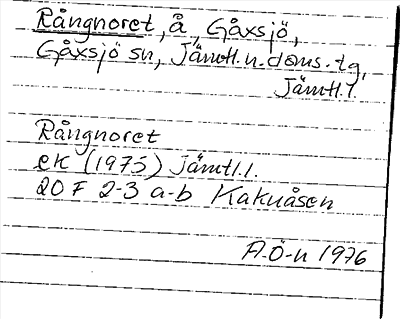 Rångnoret, å, Gåxsjö,
Gåxsjö sn, Jämtl.n.doms.tg,
Jämtl.l.
Rångnoret
ek (1975) Jämtl.l.
20 F 2-3 a-b Kakuåsen
A.Ö-n 1976